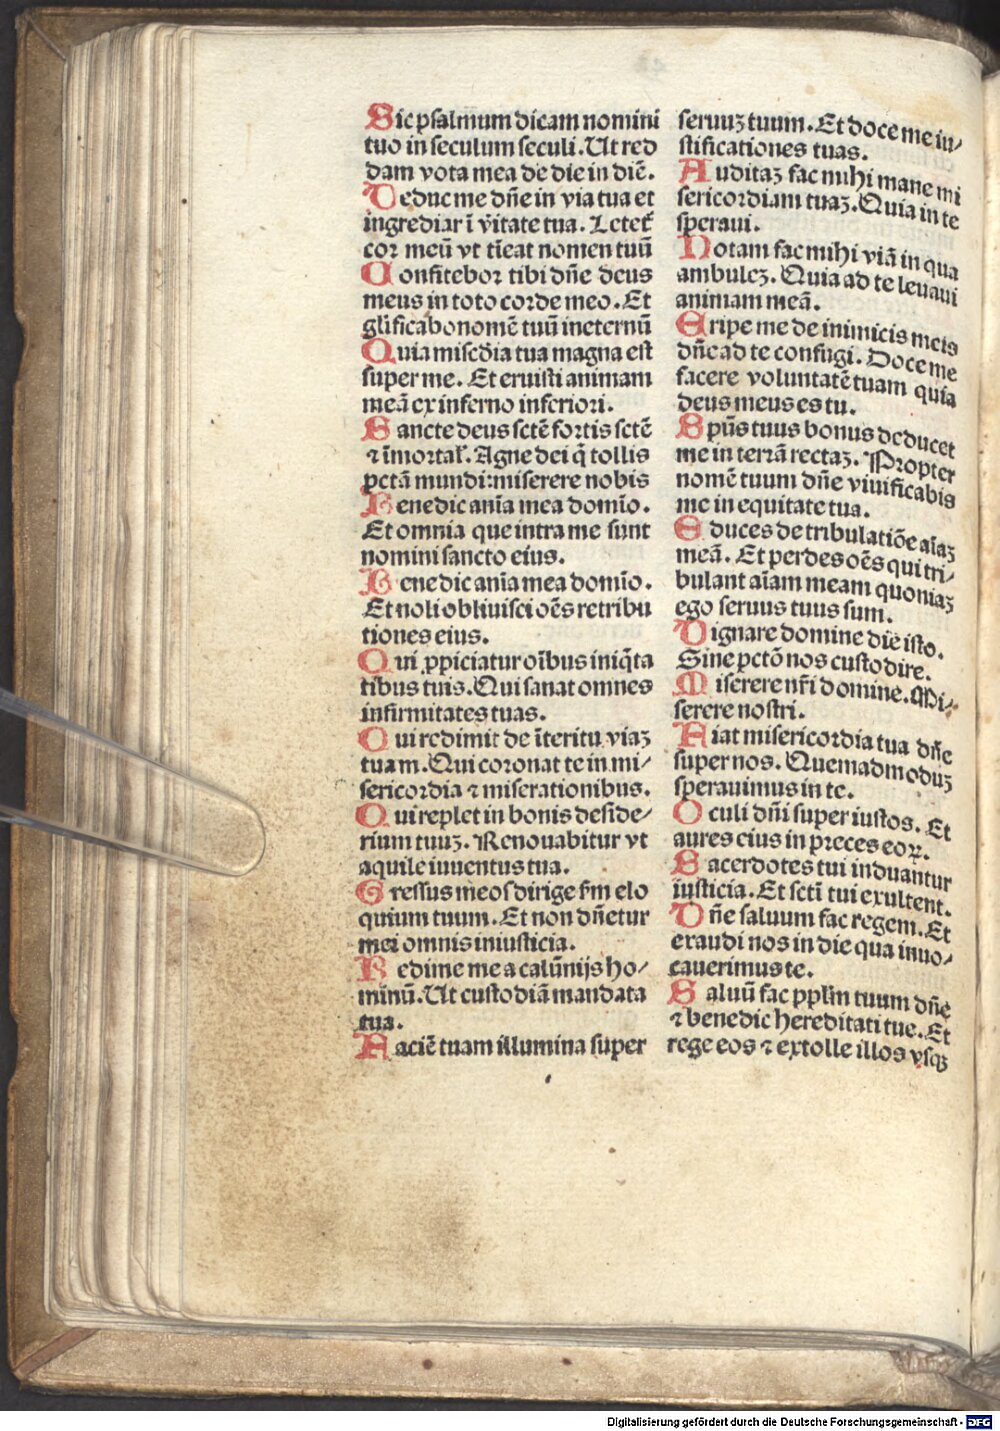 Sic psalmum dicam nomini
tuo in seculum seculi. Ut red
dam vota mea de die in diē.
Deduc me dn̄e in via tua et
ingrediar ī v̄itate tua. Letet᷑
cor meū vt tīeat nomen tuū
Confitebor tibi dn̄e deus
meus in toto corde meo. Et
gl̄ificabo nomē tuū in eternū
Quia mis̄cd̄ia tua magna est
super me. Et eruisti animam
meā ex inferno inferiori.
Sancte deus sctē fortis sctē
⁊ īmortal̛. Agne dei q̄ tollis
pctā mundi: miserere nobis
Benedic anīa mea domīo.
Et omnia que intra me sunt
nomini sancto eius.
Benedic anīa mea domīo.
Et noli obliuisci oēs retribu
tiones eius.
Qui ꝓpiciatur oībus iniq̄ta
tibus tuis. Qui sanat omnes
infirmitates tuas.
Qui redimit de īteritu viaꝫ
tuam. Qui coronat te in mi/
sericordia ⁊ miserationibus.
Qui replet in bonis deside/
rium tuuꝫ. Renouabitur vt
aquile iuuentus tua.
Gressus meos dirige s̄m elo
quium tuum. Et non dn̄etur
mei omnis iniusticia.
Redime me a calūnijs ho/
minū. Ut custodiā mandata
tua.
Faciē tuam illumina super
seruuꝫ tuum. Et doce me iu/
stificationes tuas.
Auditaꝫ fac mihi mane mi
sericordiam tuaꝫ. Quia in te
speraui.
Notam fac mihi viā in qua
ambuleꝫ. Quia ad te leuaui
animam meā.
Eripe me de inimicis meis
dn̄e ad te confugi. Doce me
facere voluntatē tuam quia
deus meus es tu.
Spūs tuus bonus deducet
me in terrā rectaꝫ. Propter
nomē tuum dn̄e viuificabis
me in equitate tua.
Educes de tribulatiōe aīaꝫ
meā. Et perdes oēs qui tri/
bulant aīam meam quoniaꝫ
ego seruus tuus sum.
Dignare domine die isto.
Sine pctō nos custodire.
Miserere nr̄i domine. Mi/
serere nostri.
Fiat misericordia tua dn̄e
super nos. Quemadmoduꝫ
sperauimus in te.
Oculi dn̄i super iustos. Et
aures eius in preces eoꝝ.
Sacerdotes tui induantur
iusticia. Et sctī tui exultent.
Dn̄e saluum fac regem. Et
exaudi nos in die qua inuo/
cauerimus te.
Saluū fac pplm̄ tuum dn̄e
⁊ benedic hereditati tue. Et
rege eos ⁊ extolle illos vsqꝫ
Digitalisierung gefördert durch die Deutsche Forschungsgemeinschaft - DFG